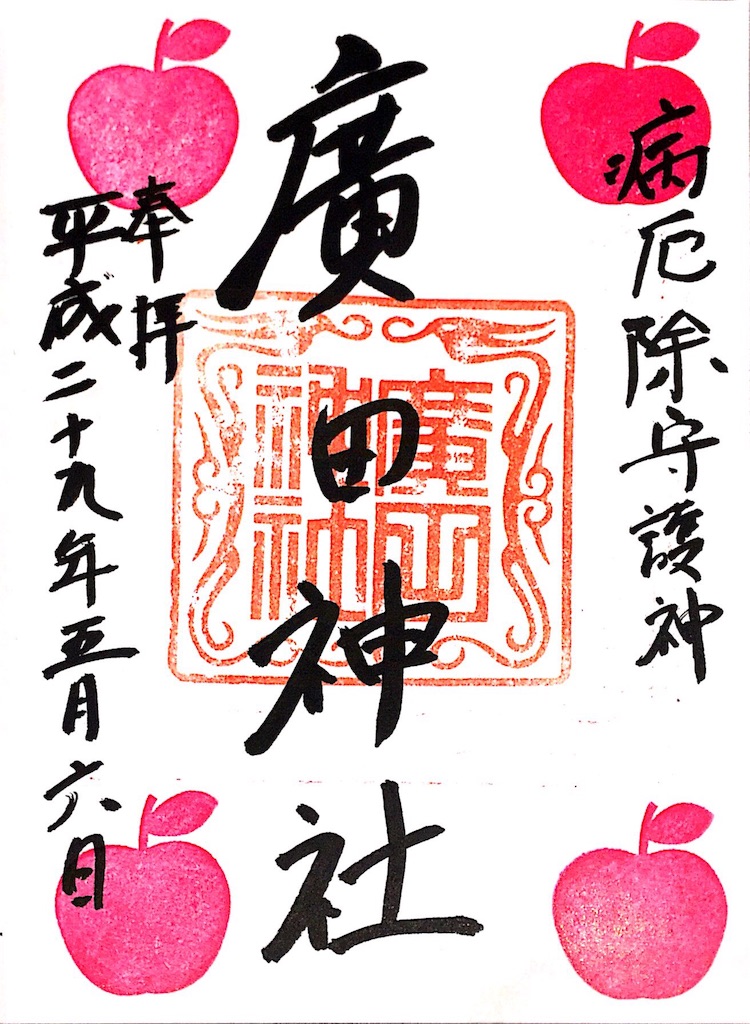 病厄除守護神
廣田神社
奉拝
平成二十九年五月六日